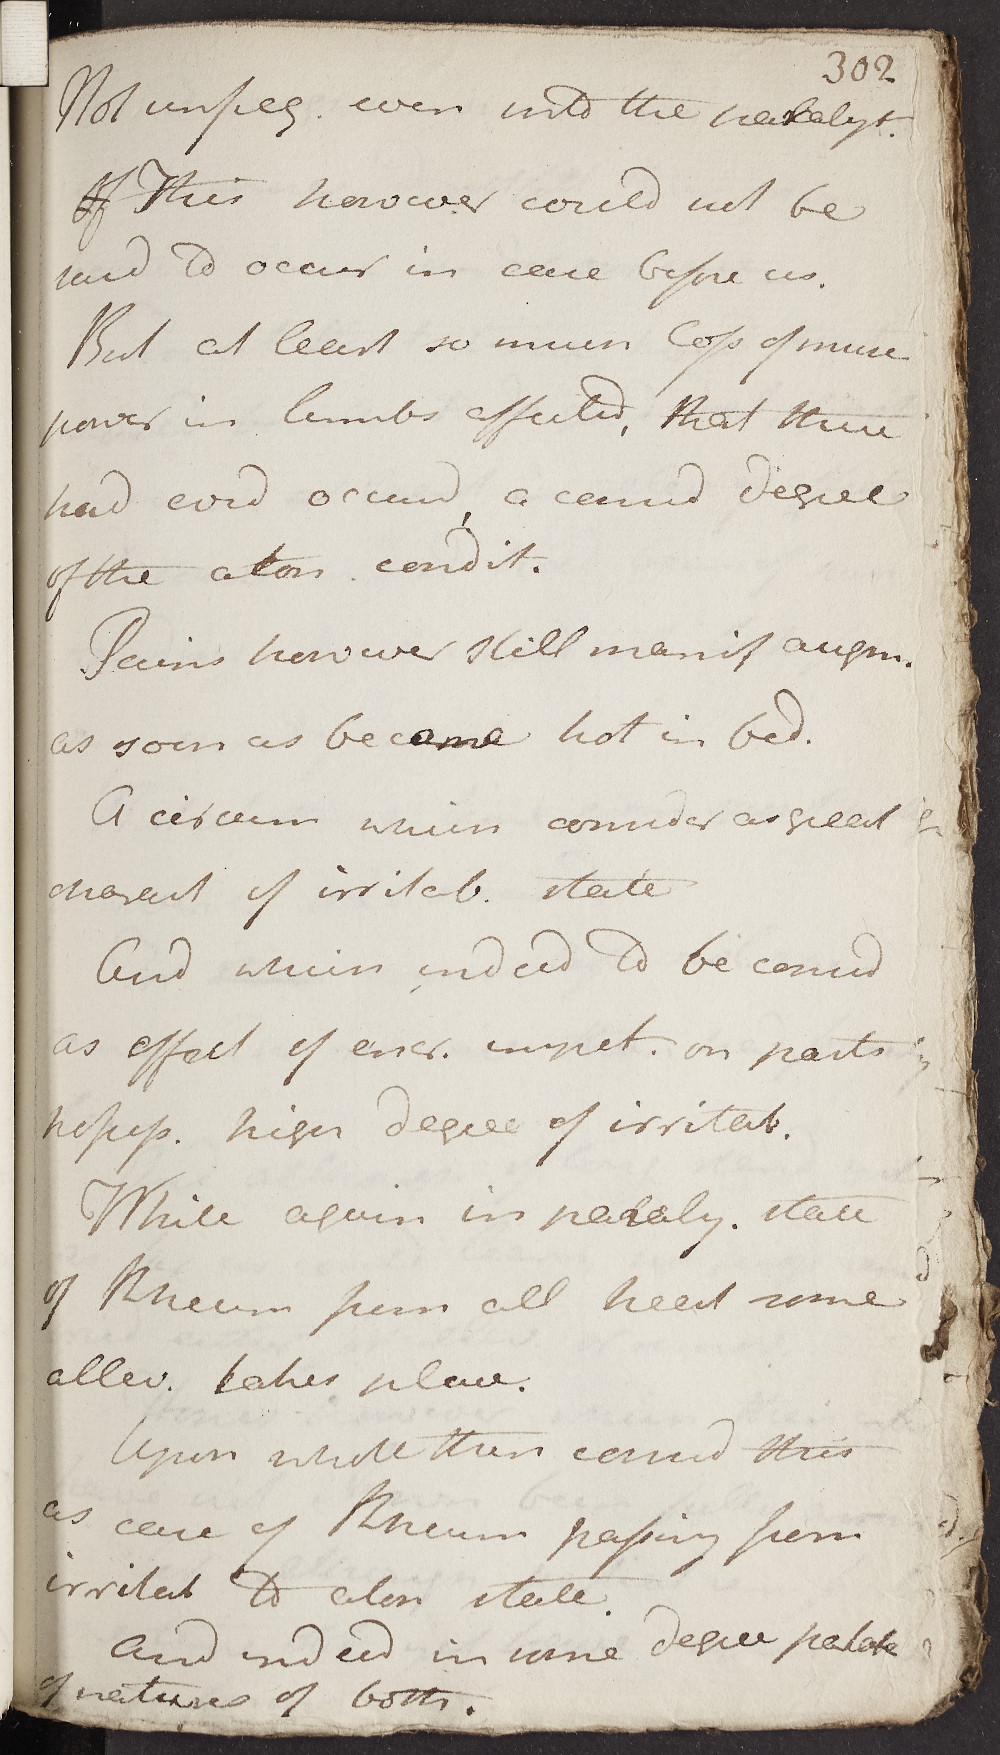 302
Not unfreq. even into the paralyt.
Of This however could not be
said to occur in case before us.
But at least so much loss of musc
power in limbs affected, that there
had evid occurred, a consid degree
of the aton. condit.
Pains however still manif augm.
as soon as became hot in bed.
A circum which consider as great
charact of irritab. state
And which indeed to be consid
as effect of encr. impet. on parts
possess. high degree of irritab.
While again in paraly. state
of Rheum from all heat some
allev. takes place.
Upon whole then consid this
as case of Rheum passing from
irritab to aton state.
And indeed in some degree partak
of natures of both.